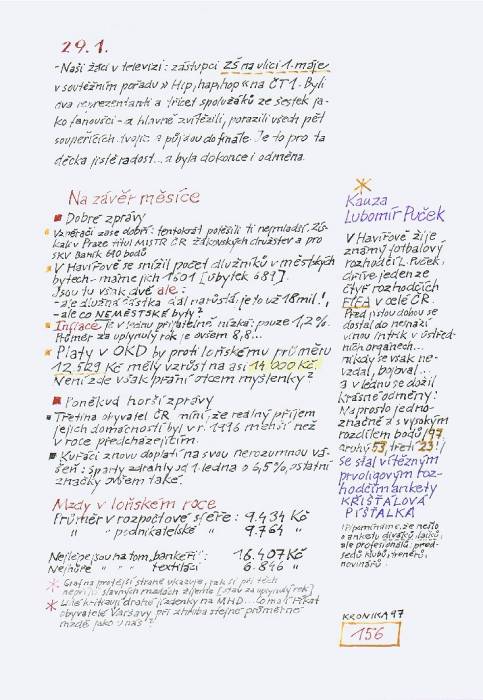 29.1.
- Naši žáci v televizi: zástupci ZŠ na ulici 1. máje
v soutěžním pořadu » Hip, hap, hop « na ČT1. Byli
dva reprezentanti a třicet spolužáků ze šestek ja-
ko fanoušci - a hlavně zvítězili, porazili všech pět
soupeřících dvojic a půjdou do finále. Je to pro ta
děcka jistě radost... a byla dokonce i odměna.
Na závěr měsíce
Dobré zprávy
Vzpěrači zase dobří: tentokrát potěšili ti nejmladší. Zís-
kali v Praze titul MISTR ČR žákovských družstev a pro
SKV Baník 610 bodů
V Havířově se snížil počet dlužníků v městských
bytech - máme jich 1501 [úbytek 681].
Jsou tu však dvě ale:
- ale dlužná částka dál narůstá, je to už 18 mil.!,
- ale co NEMĚSTSKÉ byty?
Inflace je v lednu přijatelně nízká: pouze 1,2%.
Průměr za uplynulý rok je ovšem 8,8...
Platy v OKD by proti loňskému průměru
12.529 Kč měly vzrůst na asi 14 000 Kč.
Není zde však přání otcem myšlenky?
Poněkud horší zprávy
Třetina obyvatel ČR míní, že reálný příjem
jejich domácností byl v r. 1996 menší než
v roce předcházejícím.
Kuřáci znovu doplatí na svou nerozumnou vá-
šeň: sparty zdrahly od 1. ledna o 6,5%, ostatní
značky ovšem také.
Mzdy v loňském roce
Průměr v rozpočtové sféře: 9.434 Kč
" " podnikatelské " 9.764 "
Nejlépe jsou na tom bankéři: 16.407 Kč
Nejhůře " " textiláci 6.846 "
Graf na protější straně ukazuje, jak si při těch
nepříliš slavných mzdách žijeme [stav za uplynulý rok]
Lidé kritizují drahé jízdenky na MHD... Co mají říkat
obyvatelé Varšavy při zhruba stejné průměrné
mzdě jako u nás?
Kauza
Lubomír Puček
V Havířově žije
známý fotbalový
rozhodčí L. Puček,
dříve jeden ze
čtyř rozhodčích
FIFA v celé ČR.
Před jistou dobou se
dostal do nenází
vinou intrik v ústřed-
ních orgánech...
nikdy se však ne-
vzdal, bojoval...
a v lednu se dožil
krásné odměny:
Naprosto jedno-
značně a s vysokým
rozdílem bodů /97,
druhý 53, třetí 23!/
se stal vítězným
prvoligovým roz-
hodčím ankety
KŘIŠŤÁLOVÁ
PÍŠŤALKA
/Připomínáme, že nešlo
o anketu diváků, laiků,
ale profesionálů: před-
sedů klubů, trenérů,
novinářů.
KRONIKA 97
156